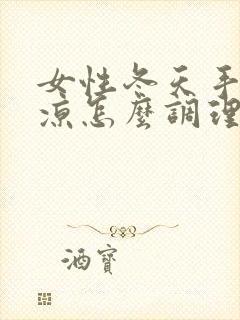 女性冬天手
涼怎麼調理
酒寶